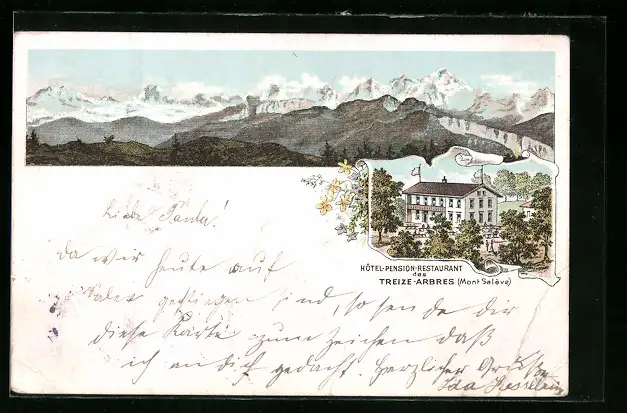 HÔTEL-PENSION-RESTAURANT
des
TREIZE-ARBRES (Mont Salève)
Liebe Paula!
da wir heute auf
Salev gestiegen sind, so sende dir
diese Karte zum Zeichen daß
ich an dich gedacht. Herzlicher Gruß
Ida